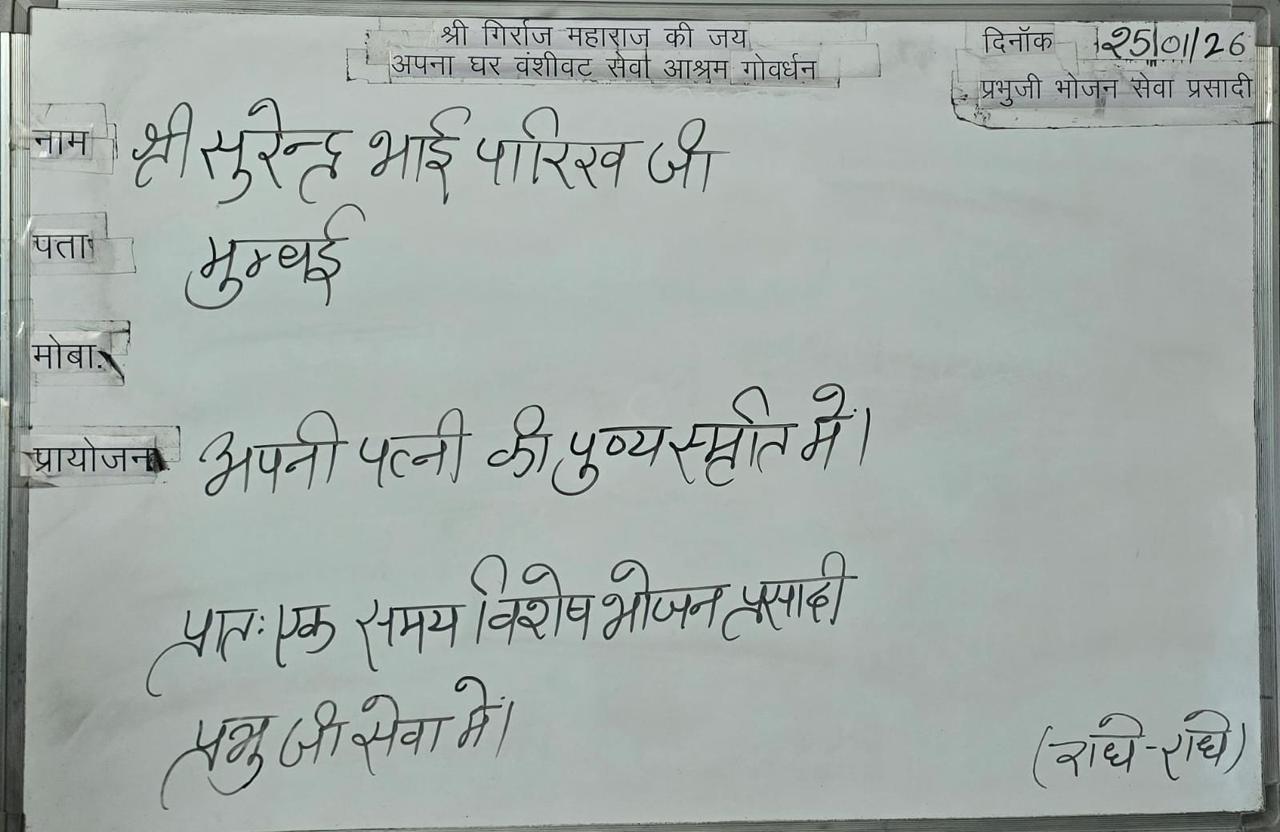 श्री गिर्राज महाराज की जय
अपना घर वंशीवट सेवा आश्रम गोवर्धन
दिनॉक 25/01/26
प्रभुजी भोजन सेवा प्रसादी
नाम श्री सुरेन्द्र भाई पारिख जी
पता मुम्बई
मोबा.
प्रायोजन अपनी पत्नी की पुण्य स्मृति में।
प्रातः एक समय विशेष भोजन प्रसादी
प्रभु जी सेवा में।
(राधे-राधे)